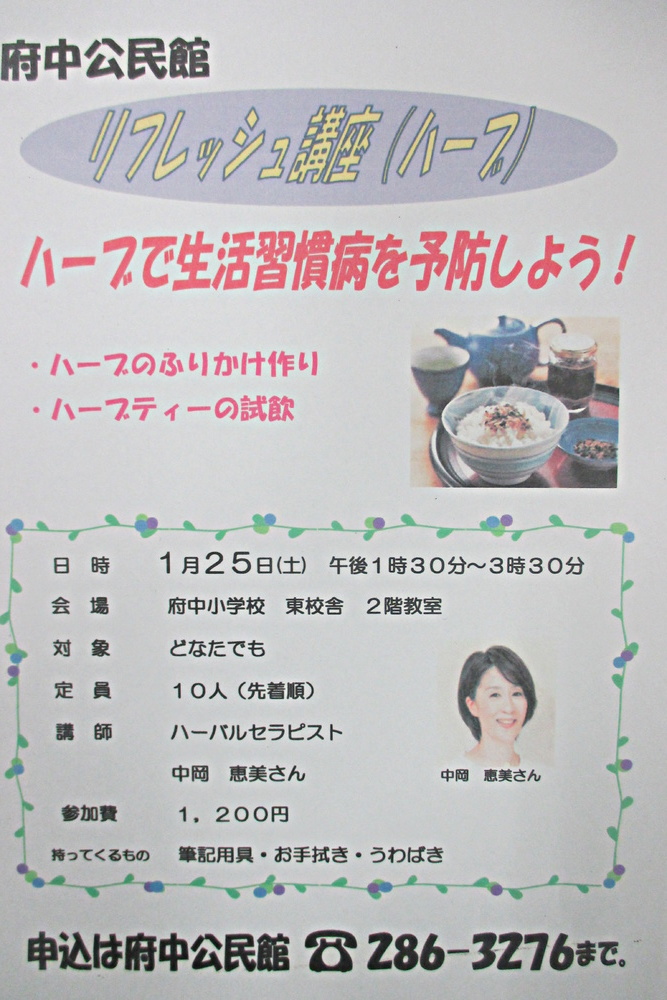 府中公民館
リフレッシュ講座（ハーブ）
ハーブで生活習慣病を予防しよう！
・ハーブのふりかけ作り
・ハーブティーの試飲
日　時　１月２５日(土)　午後１時３０分～３時３０分
会　場　府中小学校　東校舎　２階教室
対　象　どなたでも
定　員　１０人（先着順）
講　師　ハーバルセラピスト
中岡　恵美さん
中岡　恵美さん
参加費　１，２００円
持ってくるもの　筆記用具・お手拭き・うわばき
申込は府中公民館 ☎286-3276まで。